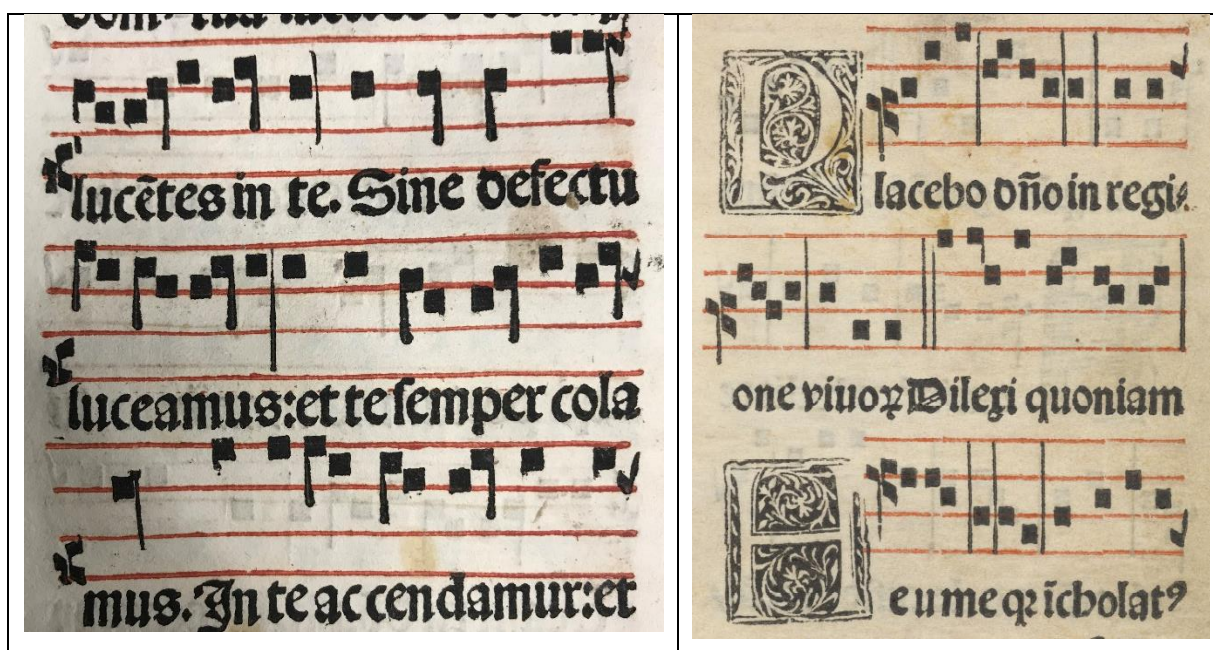 lucētes in te. Sine defectu
luceamus:et te semper cola
mus. In te accendamur:et
Placebo dño in regi⸗
one viuoꝝ Dilexi quoniam
Heu me qꝛ īcholatꝰ